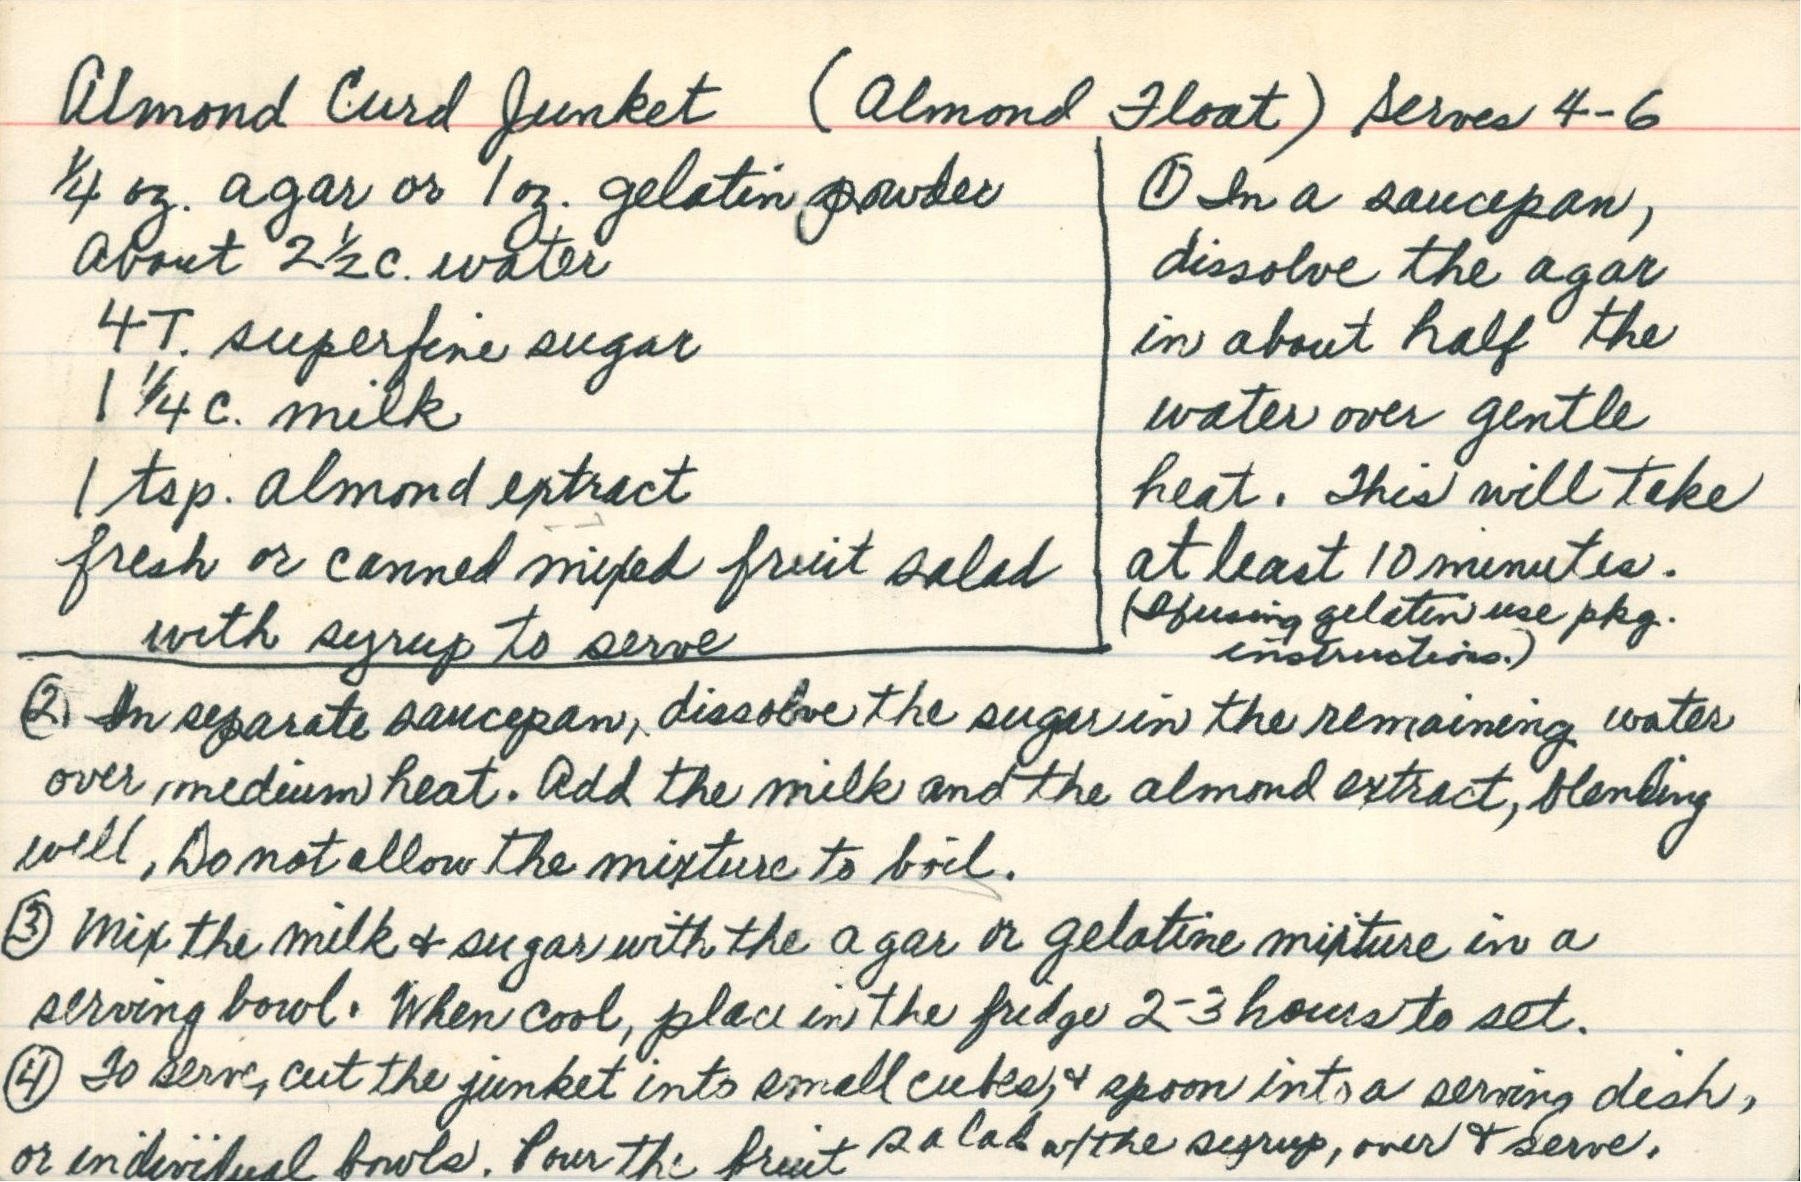 Almond Curd Junket (Almond Float) Serves 4-6
1/4 oz. agar or 1 oz. gelatin powder
About 2 1/2 c. water
4 T. superfine sugar
1 1/4 c. milk
1 tsp. almond extract
fresh or canned mixed fruit salad
with syrup to serve
① In a saucepan,
dissolve the agar
in about half the
water over gentle
heat. This will take
at least 10 minutes.
(If using gelatin use pkg.
instructions.)
② In separate saucepan, dissolve the sugar in the remaining water
over medium heat. Add the milk and the almond extract, blending
well. Do not allow the mixture to boil.
③ Mix the milk & sugar with the agar or gelatine mixture in a
serving bowl. When cool, place in the fridge 2-3 hours to set.
④ To serve, cut the junket into small cubes, & spoon into a serving dish,
or individual bowls. Pour the fruit salad w/the syrup, over & serve.